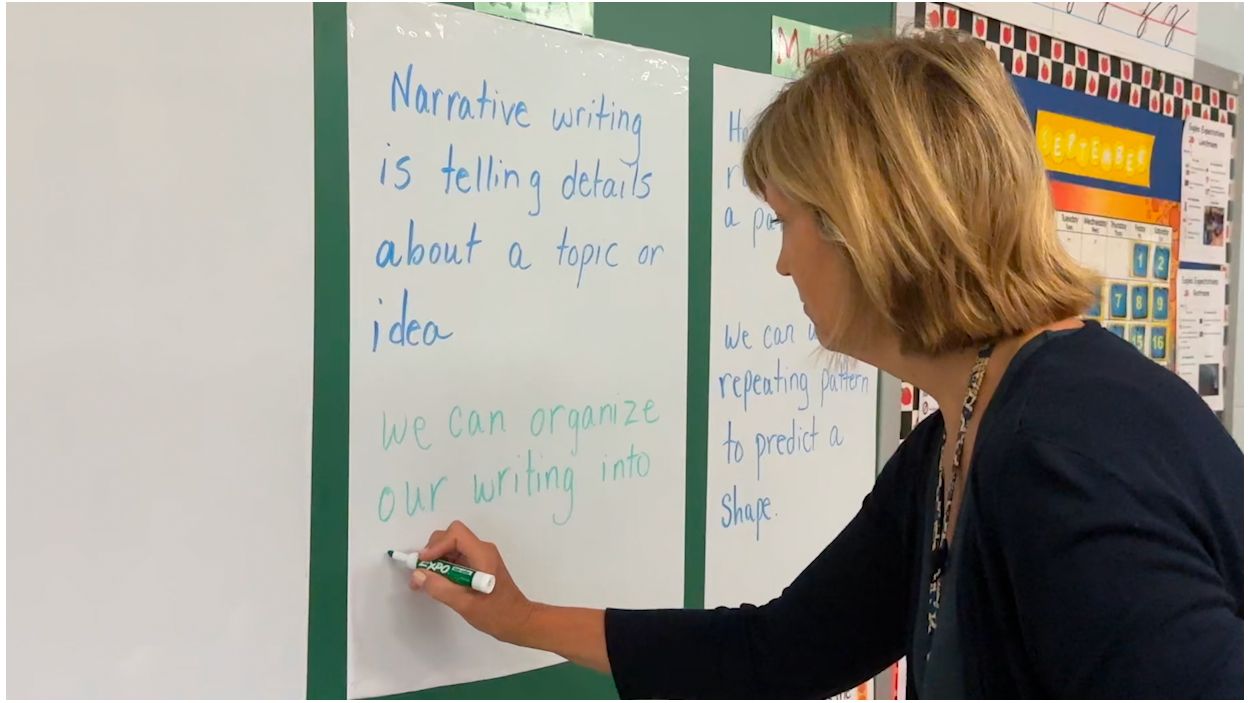 Narrative writing
is telling details
about a topic or
idea
we can organize
our writing into
EXPO
Math
a
We can
repeating pattern
to predict a
shape.
SEPTEMBER
Tuesday Wednesday Thursday Friday Saturday
1 2
7 8 9
15 16